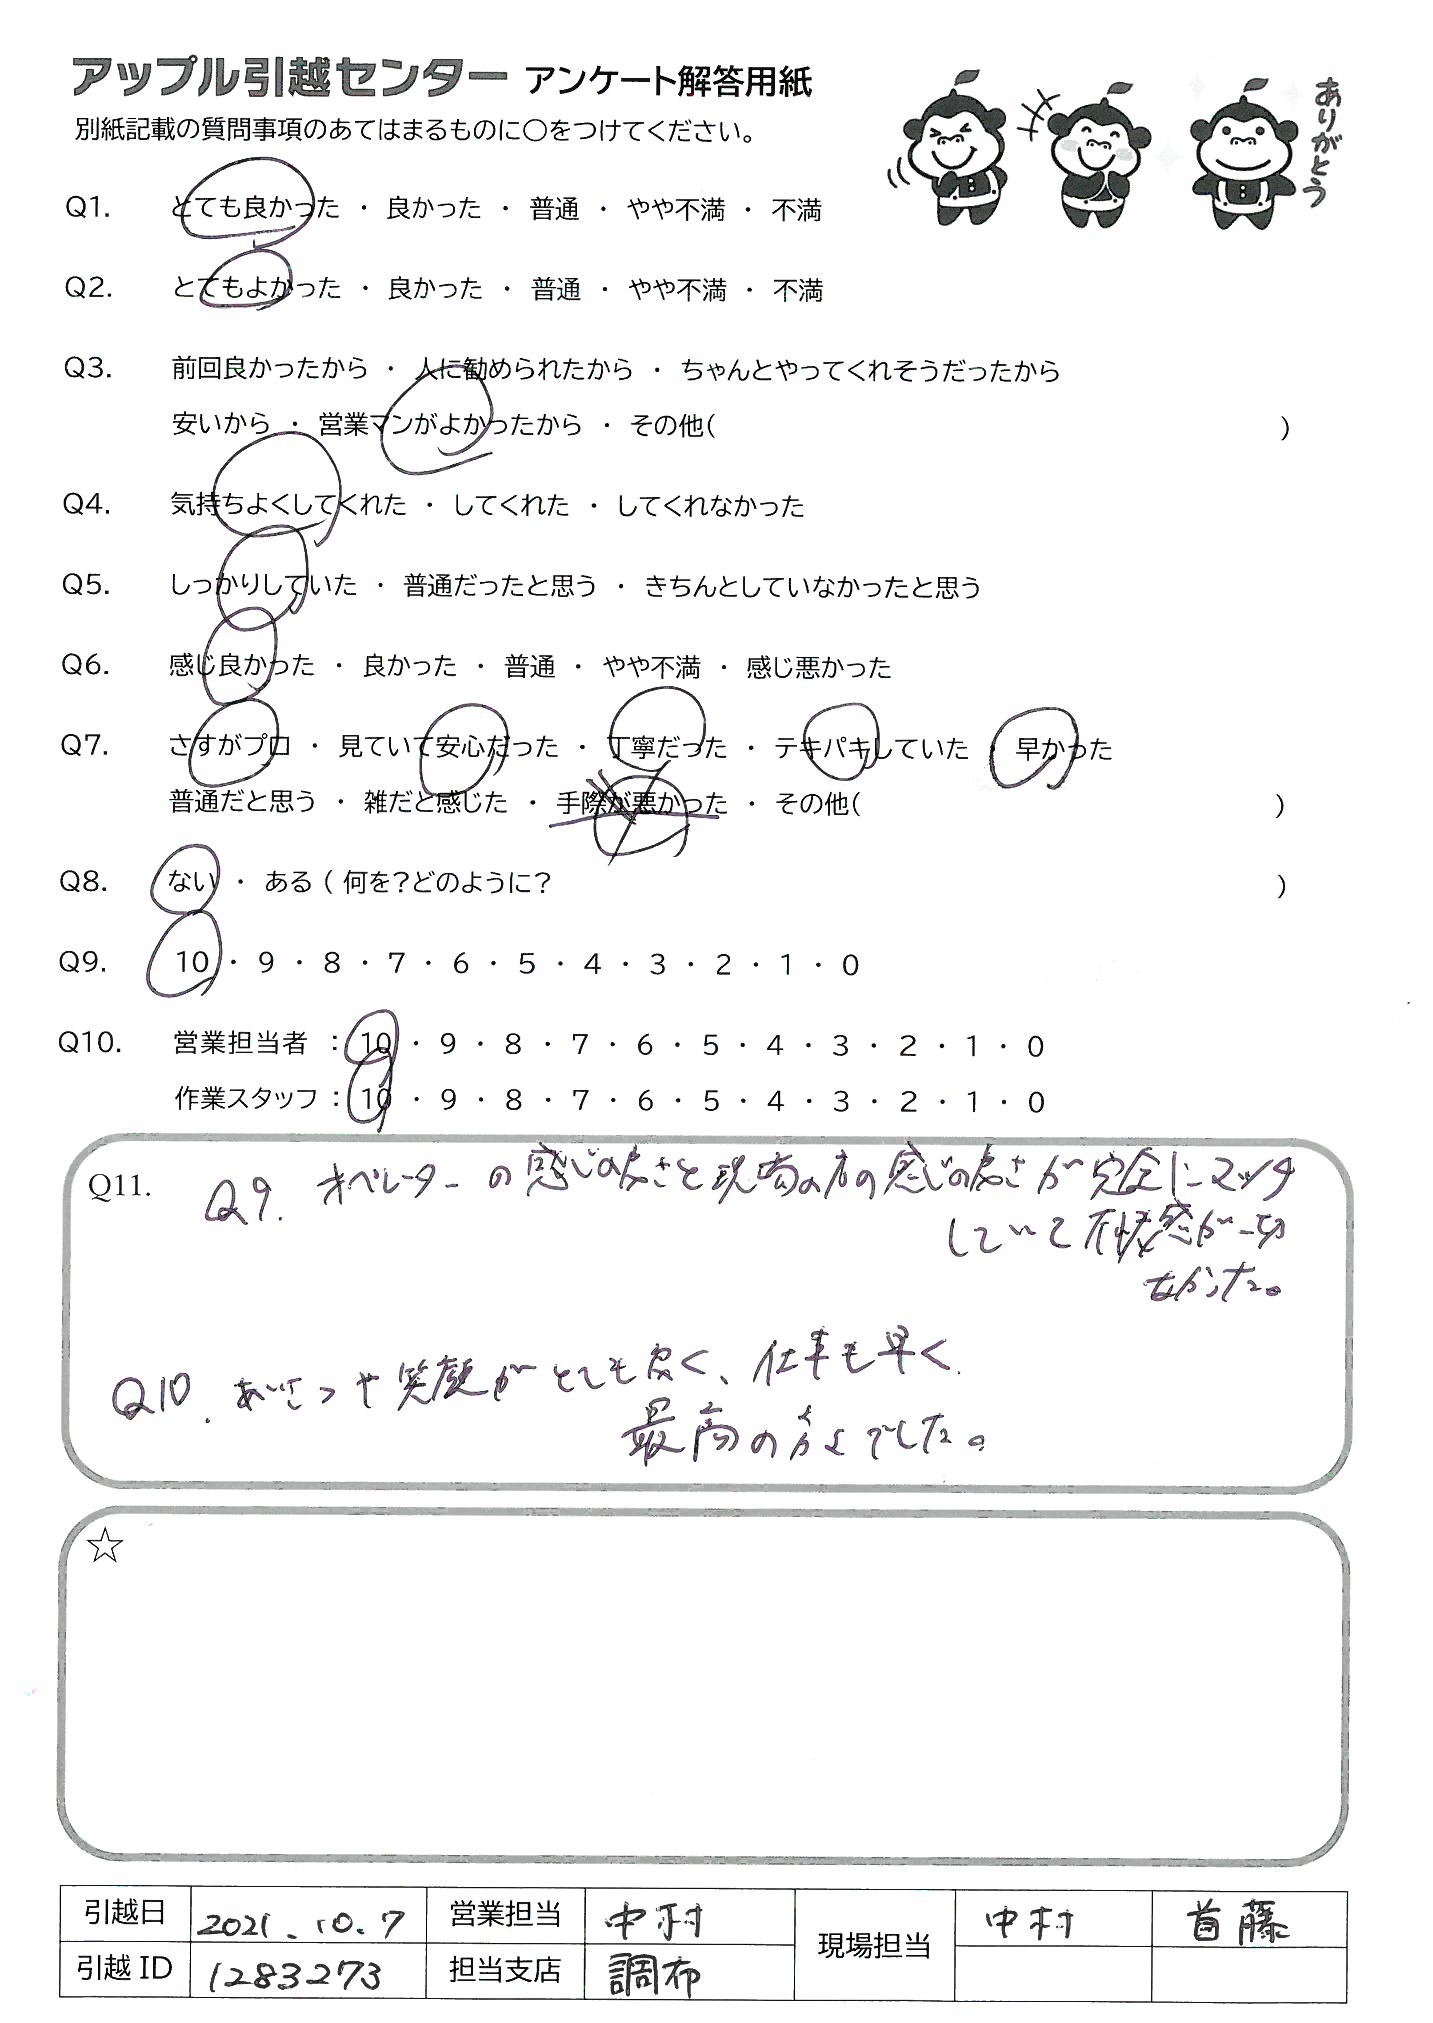 アップル引越センター アンケート解答用紙
別紙記載の質問事項のあてはまるものに○をつけてください。
ありがとう
Q1. とても良かった ・ 良かった ・ 普通 ・ やや不満 ・ 不満
Q2. とてもよかった ・ 良かった ・ 普通 ・ やや不満 ・ 不満
Q3. 前回良かったから ・ 人に勧められたから ・ ちゃんとやってくれそうだったから
安いから ・ 営業マンがよかったから ・ その他( )
Q4. 気持ちよくしてくれた ・ してくれた ・ してくれなかった
Q5. しっかりしていた ・ 普通だったと思う ・ きちんとしていなかったと思う
Q6. 感じ良かった ・ 良かった ・ 普通 ・ やや不満 ・ 感じ悪かった
Q7. さすがプロ ・ 見ていて安心だった ・ 丁寧だった ・ テキパキしていた ・ 早かった
普通だと思う ・ 雑だと感じた ・ 手際が悪かった ・ その他( )
Q8. ない ・ ある ( 何を?どのように? )
Q9. 10 ・ 9 ・ 8 ・ 7 ・ 6 ・ 5 ・ 4 ・ 3 ・ 2 ・ 1 ・ 0
Q10. 営業担当者 : 10 ・ 9 ・ 8 ・ 7 ・ 6 ・ 5 ・ 4 ・ 3 ・ 2 ・ 1 ・ 0
作業スタッフ : 10 ・ 9 ・ 8 ・ 7 ・ 6 ・ 5 ・ 4 ・ 3 ・ 2 ・ 1 ・ 0
Q11. Q9. オペレーターの感じの良さと現場の方の感じの良さが完全にマッチ
していて不快感が一切
なかった。
Q10. あいさつや笑顔がとても良く、仕事も早く、
最高の方々でした。
☆
引越日 2021.10.7 営業担当 中村 現場担当 中村 首藤
引越ID 1283273 担当支店 調布